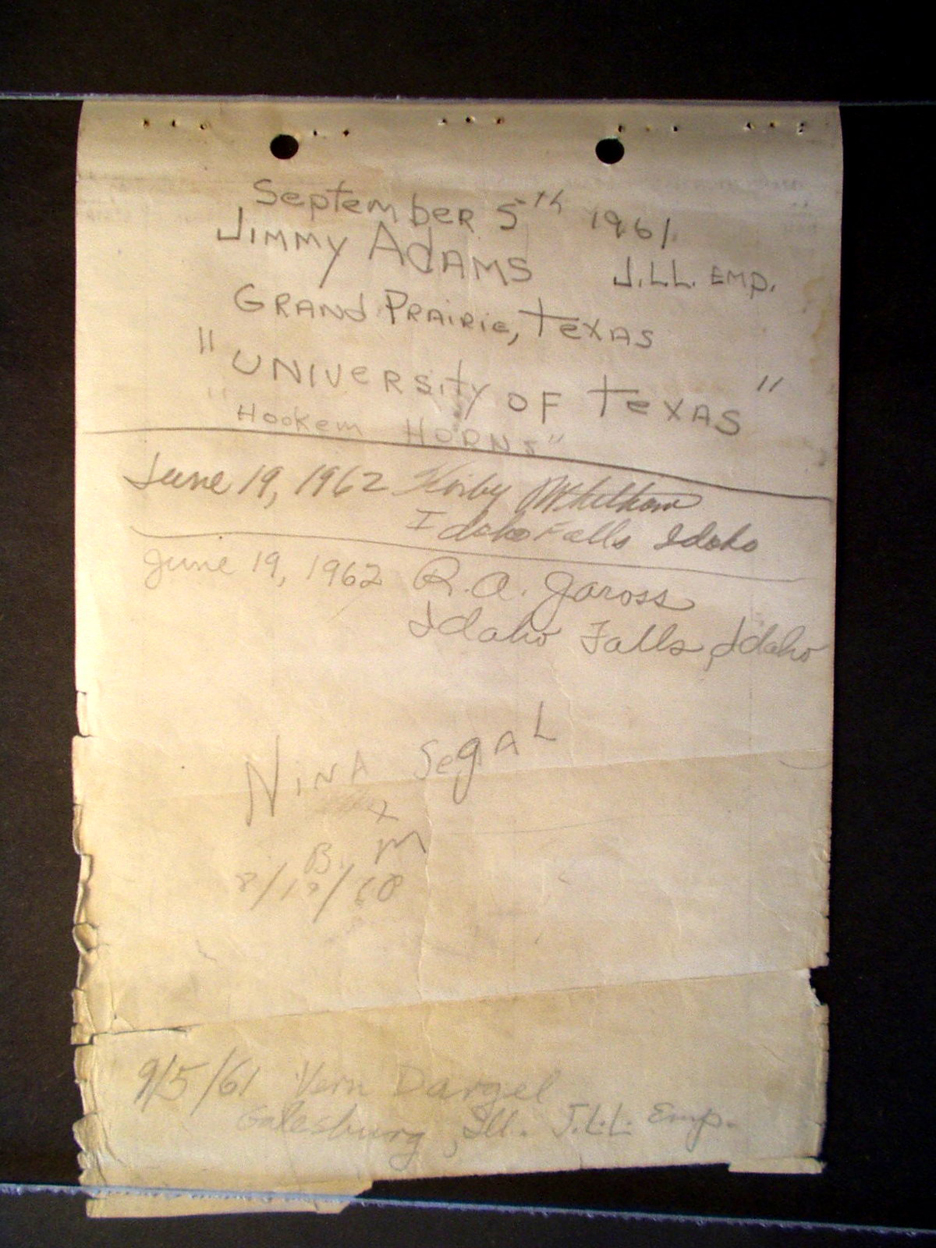 September 5th 1961
Jimmy Adams J.L.L. Emp.
Grand Prairie, Texas
"University of Texas"
"Hookem Horns"
June 19, 1962 Kirby
Idaho Falls Idaho
June 19, 1962 R.A. Jaross
Idaho Falls, Idaho
Nina Segal
By M
9/5/61 Vern Dargel
Galesburg, Ill. J.L.L. Emp.